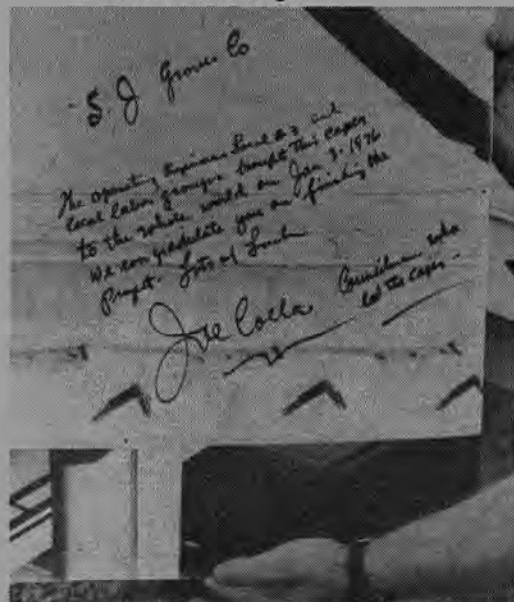 S. J Groves Co
The operating Engineers Local #3 and
local labor groups brought this caper
to the whole world on Jan 3, 1976
We congradulate you on finishing the
Project. Lots of Luck
Joe Colla Councilman who
led the caper -